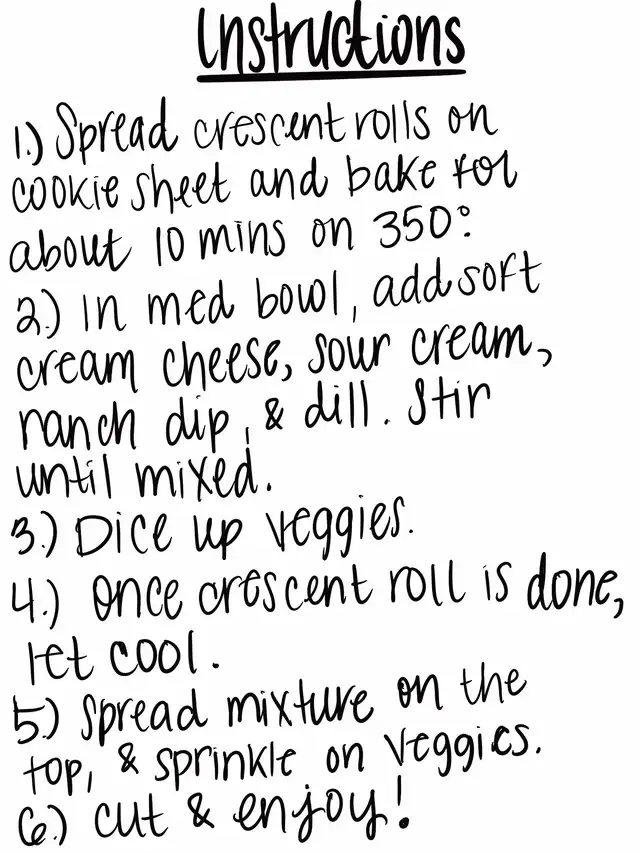 Instructions
1.) Spread crescent rolls on
cookie sheet and bake for
about 10 mins on 350°.
2.) In med bowl, add soft
cream cheese, sour cream,
ranch dip, & dill. Stir
until mixed.
3.) Dice up veggies.
4.) Once crescent roll is done,
let cool.
5.) Spread mixture on the
top, & sprinkle on veggies.
6.) Cut & enjoy!